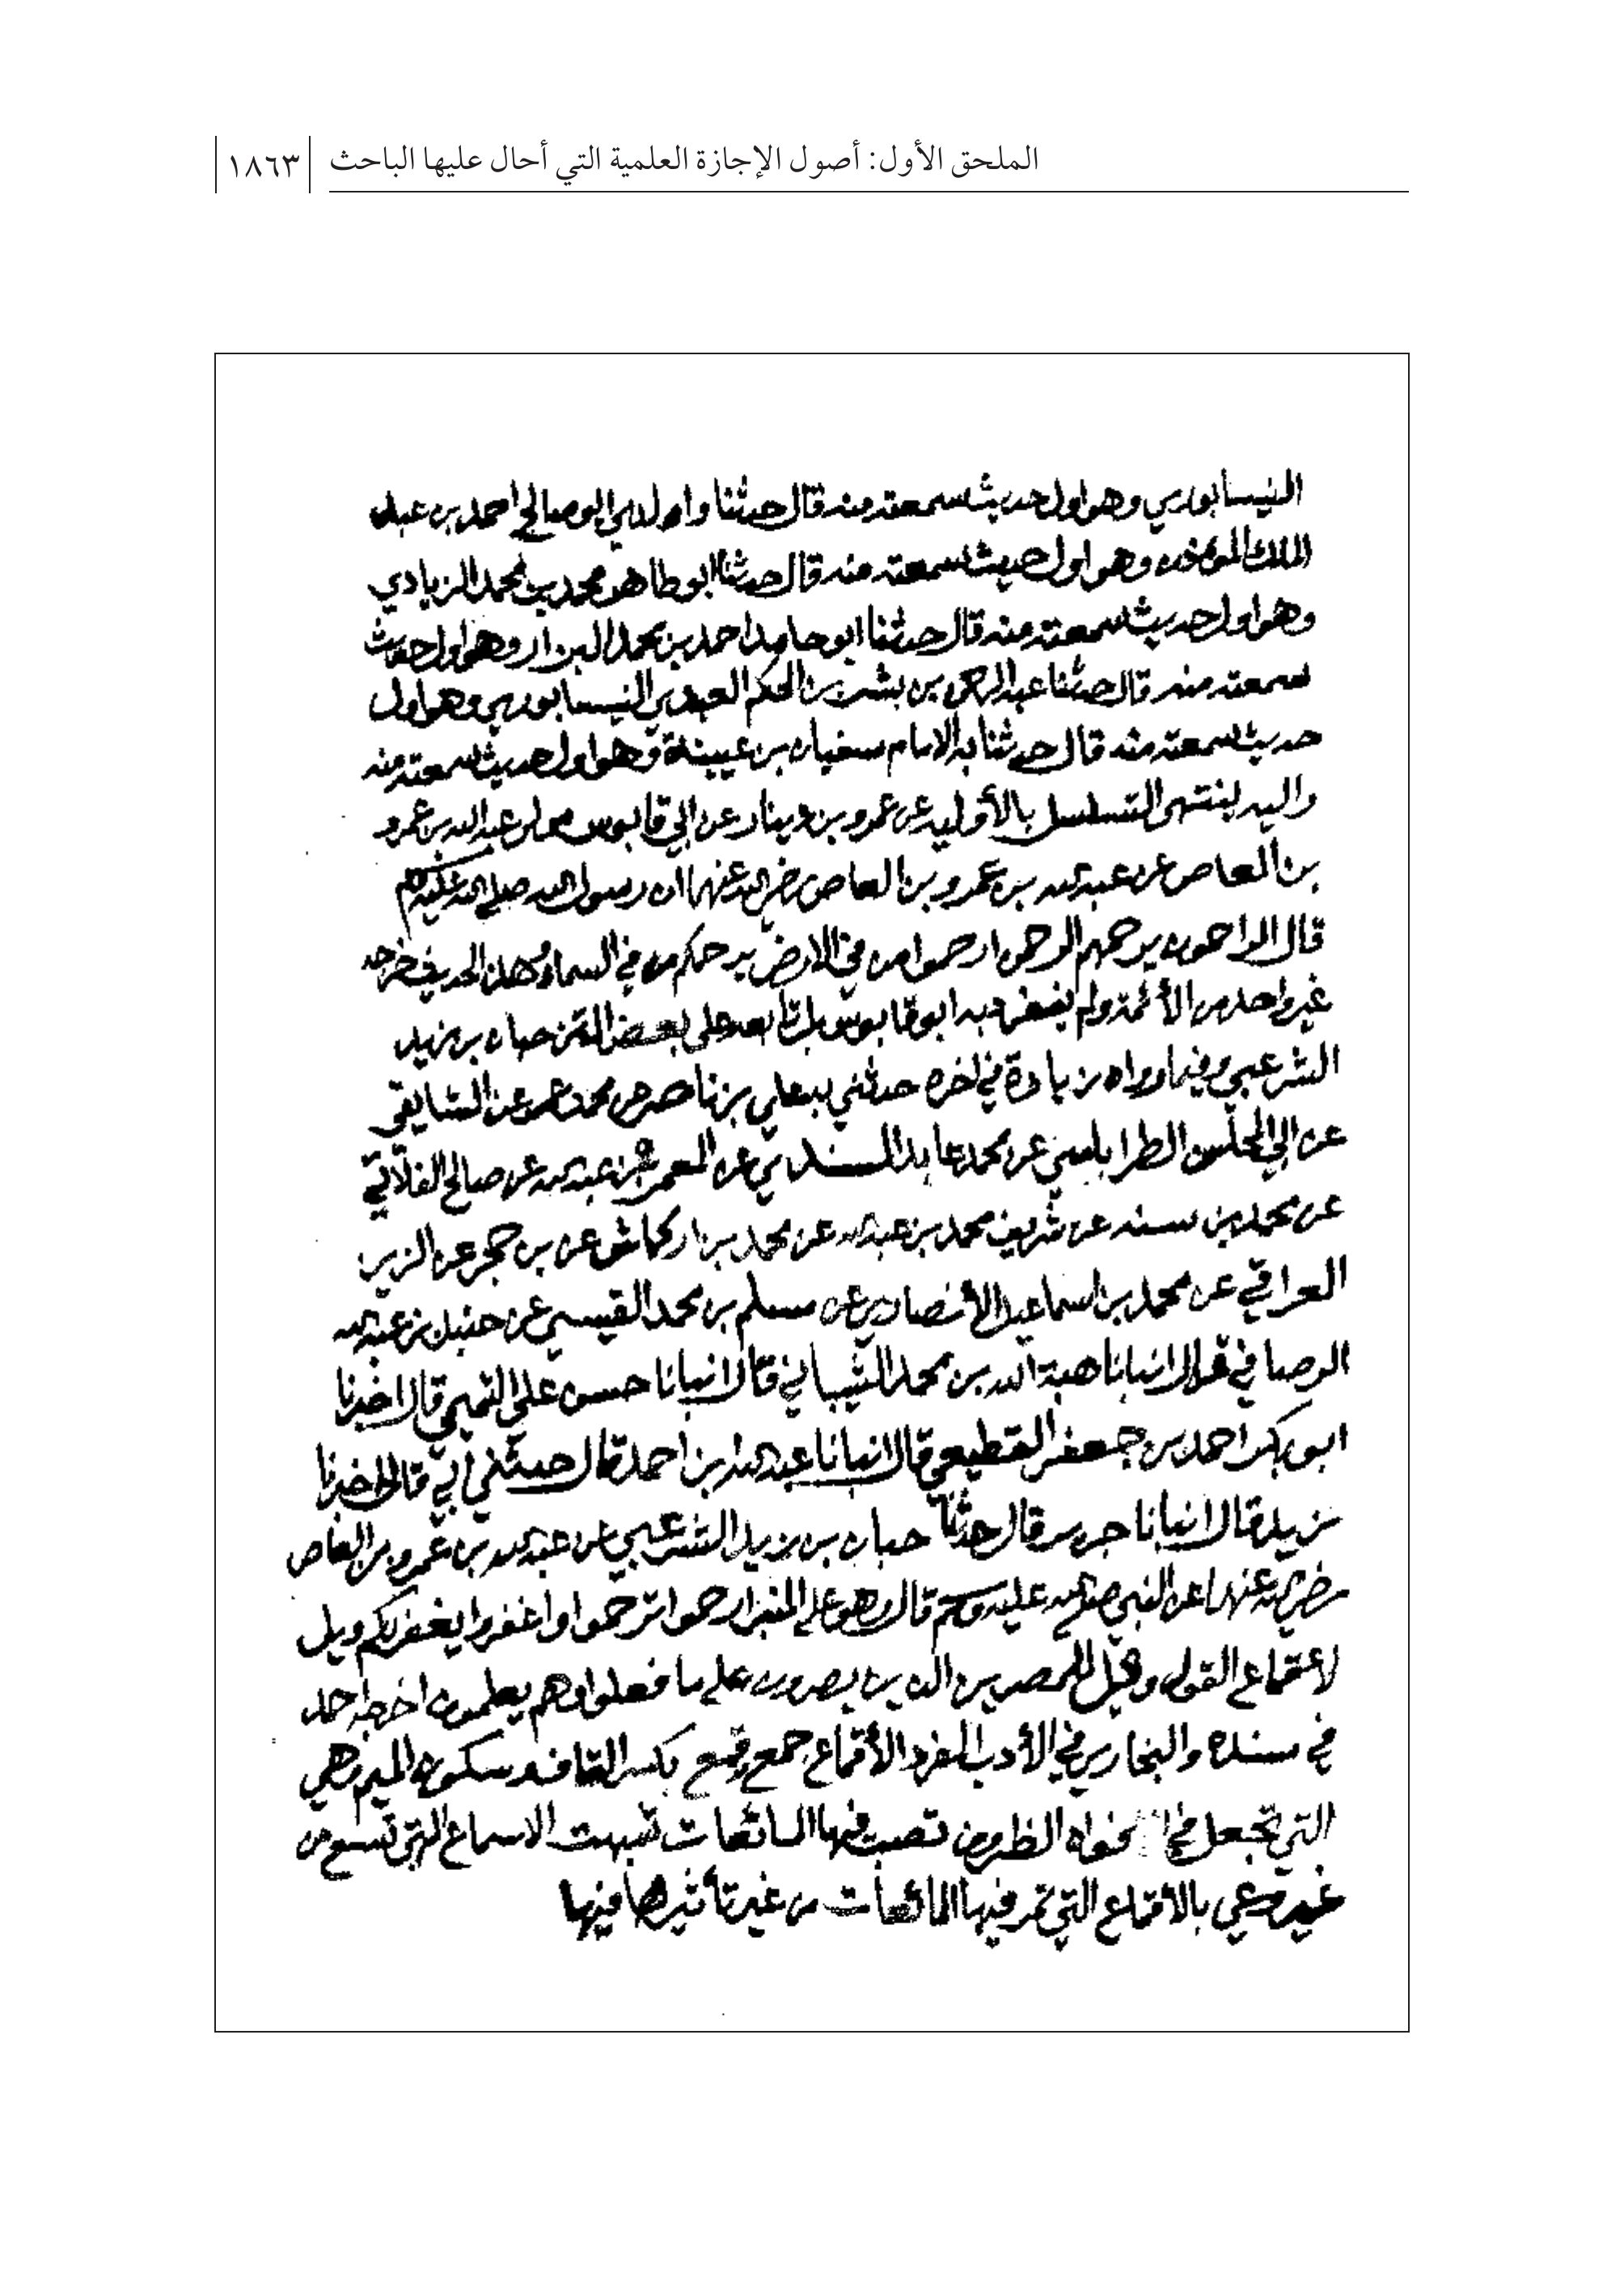 الملحق الأول: أصول الإجازة العلمية التي أحال عليها الباحث ١٨٦٣
النيسابوري وهو اول حديث سمعته منه قال حدثنا والدي ابو صالح احمد بن عبد
الملك المؤذن وهو اول حديث سمعته منه قال حدثنا ابو طاهر محمد بن محمد الزيادي
وهو اول حديث سمعته منه قال حدثنا ابو حامد احمد بن محمد البزار وهو اول حديث
سمعته منه قال حدثنا عبد الرحمن بن بشر بن الحكم العبدي النيسابوري وهو اول
حديث سمعته منه قال حدثنا به الامام سفيان بن عيينة وهو اول حديث سمعته منه
واليه ينتهى التسلسل بالأوليه عن عمرو بن دينار عن ابي قابوس مولى عبد الله بن عمرو
بن العاص عن عبد الله بن عمرو بن العاص رضي الله عنهما ان رسول الله صلى الله عليه وسلم
قال الراحمون يرحمهم الرحمن ارحموا من في الارض يرحمكم من في السماء وهذا الحديث خرجه
غير واحد من الأئمة ولم ينفرد به ابو قابوس بل تابعه على بعض المتن حبان بن زيد
الشرعبي وفيما رواه زيادة في اخره حدثني به علي بن ناصر عن محمد عمر عن الشايقي
عن ابي المحاسن الطرابلسي عن محمد عابد السندي عن المعمر بن عبد الله عن صالح الفلاني
عن محمد بن سنه عن شريف محمد بن عبد الله عن محمد بن اركماش عن بن حجر عن الزين
العراقي عن محمد بن اسماعيل الأنصاري عن مسلم بن محمد القيسي عن حنبل بن عبد الله
الرصافي قال انبانا هبة الله بن محمد الشيباني قال انبانا حسن علي التميمي قال اخبرنا
ابو بكر احمد بن جعفر القطيعي قال انبانا عبد الله بن احمد قال حدثني ابي قال اخبرنا
يزيد قال انبانا جرير قال حدثنا حبان بن زيد الشرعبي عن عبد الله بن عمرو بن العاص
رضي الله عنهما عن النبي صلى الله عليه وسلم قال وهو على المنبر ارحموا ترحموا واغفروا يغفر لكم ويل
لأقماع القول وويل للمصرين الذين يصرون على ما فعلوا وهم يعلمون اخرجه احمد
في مسنده والبخاري في الأدب المفرد الأقماع جمع قمع بكسر القاف وسكون الميم وهي
التي تجعل في افواه الظروف تصب فيها المائعات شبهت الاسماع التي تسمع من
غير وعي بالأقماع التي تمر فيها المائعات من غير تأثيرها فيها